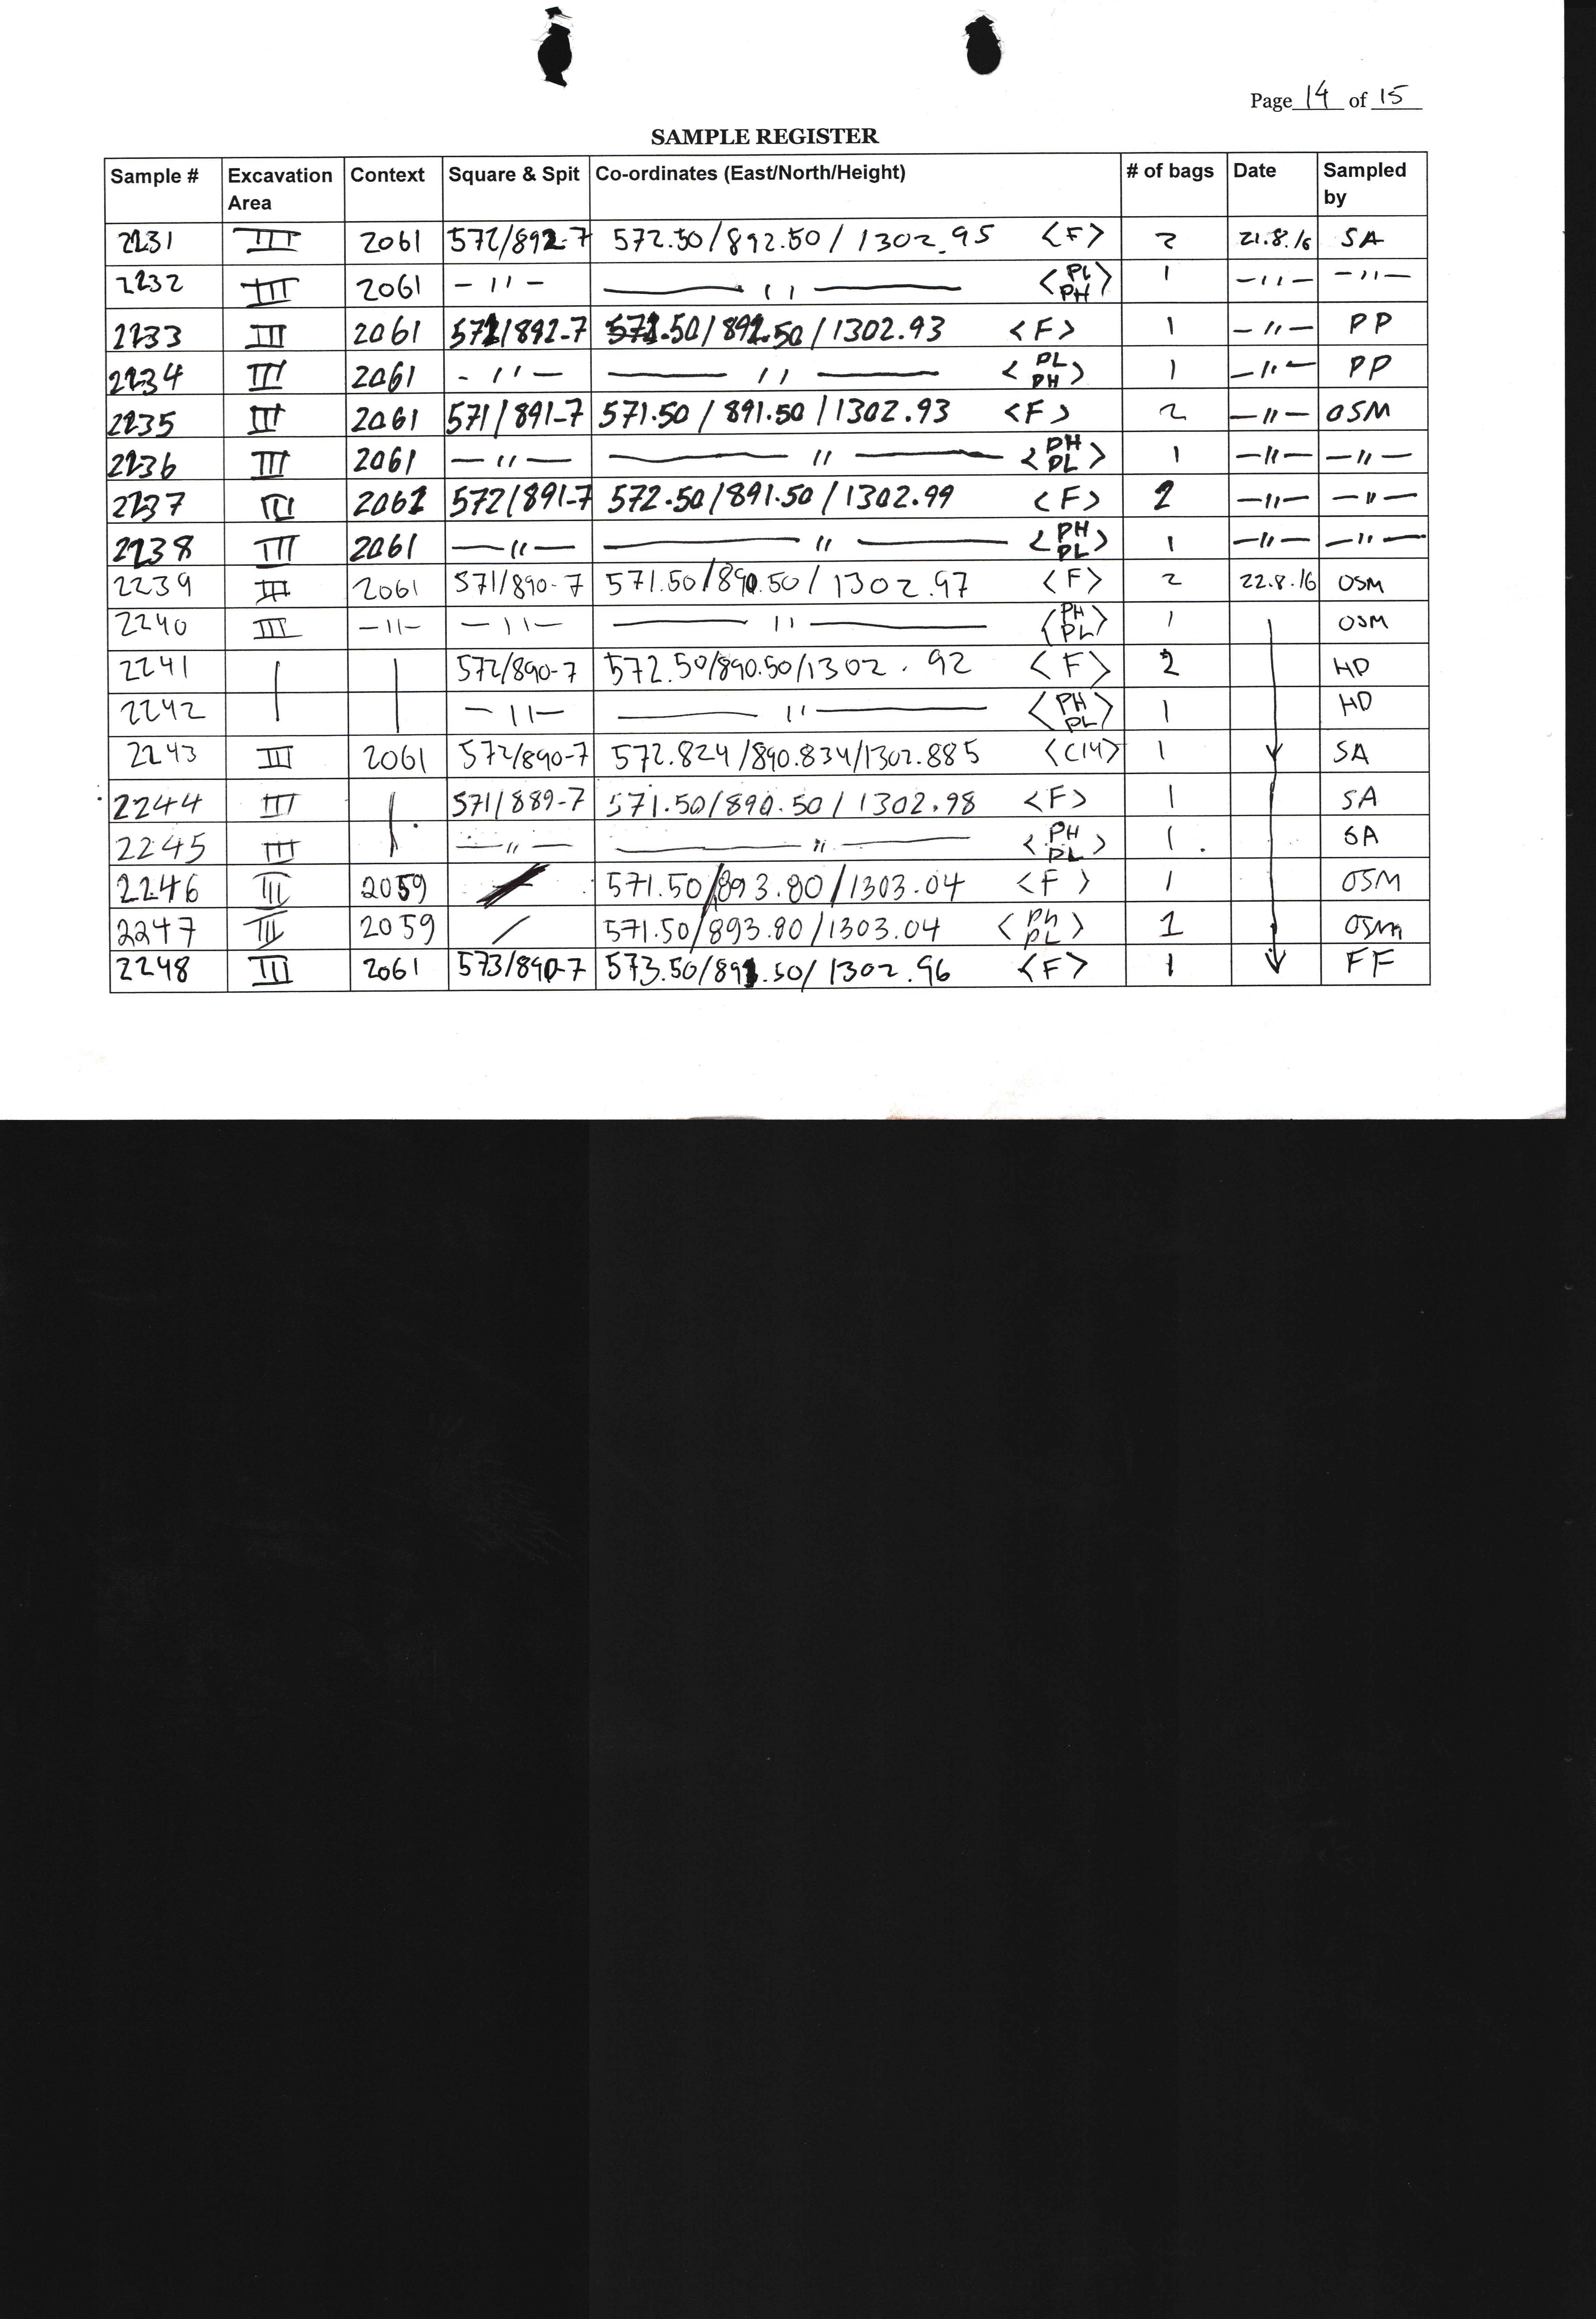 Page 14 of 15
SAMPLE REGISTER
Sample # Excavation Area Context Square & Spit Co-ordinates (East/North/Height) # of bags Date Sampled by
2231 III 2061 572/892-7 572.50/892.50/1302.95 <F> 2 21.8.16 SA
2232 III 2061 -〃- -〃- <PL PH> 1 -〃- -〃-
2233 III 2061 /892-7 /1302.93 <F> 1 -〃- PP
2234 III 2061 -〃- -〃- <PL PH> 1 -〃- PP
2235 III 2061 571/891-7 571.50/891.50/1302.93 <F> 2 -〃- OSM
2236 III 2061 -〃- -〃- <PH PL> 1 -〃- -〃-
2237 III 2061 572/891-7 572.50/891.50/1302.99 <F> 2 -〃- -〃-
2238 III 2061 -〃- -〃- <PH PL> 1 -〃- -〃-
2239 III 2061 571/890-7 571.50/890.50/1302.97 <F> 2 22.8.16 OSM
2240 III -〃- -〃- -〃- <PH PL> 1 OSM
2241 572/890-7 572.50/890.50/1302.92 <F> 2 HD
2242 -〃- -〃- <PH PL> 1 HD
2243 III 2061 572/890-7 572.824/890.834/1302.885 <C14> 1 SA
2244 III 571/889-7 571.50/890.50/1302.98 <F> 1 SA
2245 III -〃- -〃- <PH PL> 1 SA
2246 III 2059 571.50/893.80/1303.04 <F> 1 OSM
2247 III 2059 / 571.50/893.80/1303.04 <Ph PL> 1 OSM
2248 III 2061 573/890-7 573.50/ /1302.96 <F> 1 FF